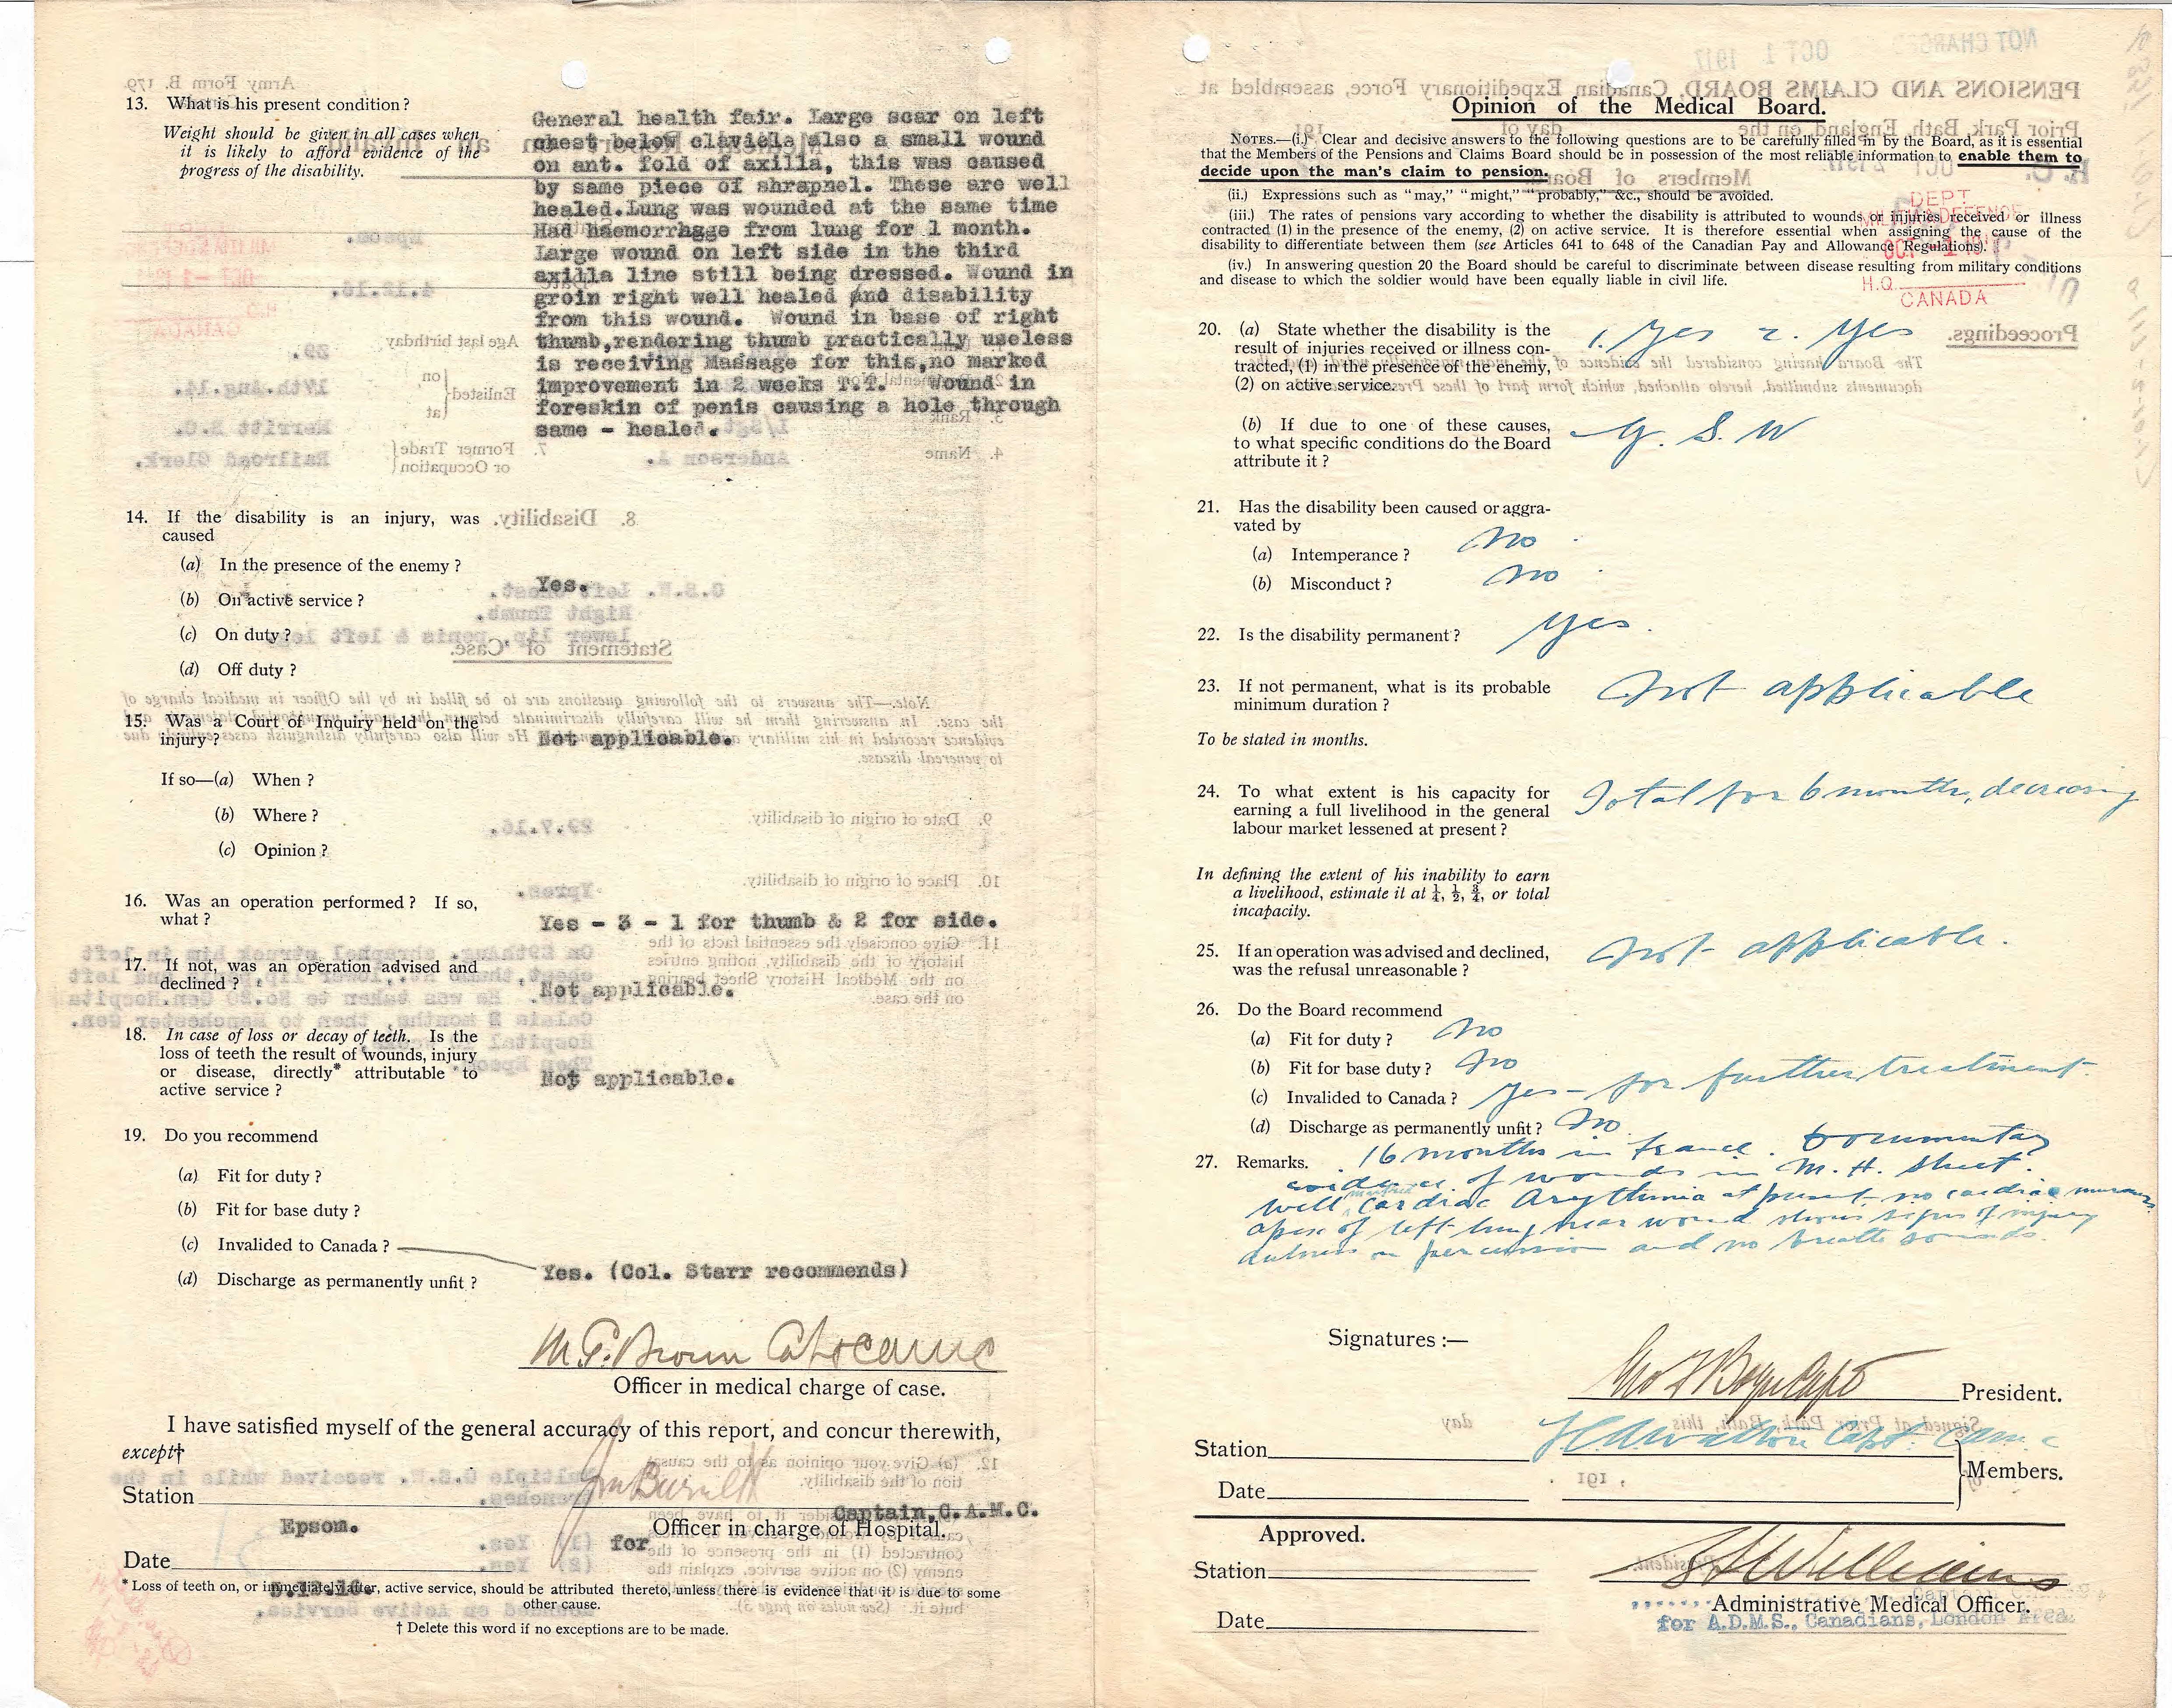 13. What is his present condition?
Weight should be given in all cases when
it is likely to afford evidence of the
progress of the disability.
General health fair. Large scar on left
chest below clavicle also a small wound
on ant. fold of axilla, this was caused
by same piece of shrapnel. These are well
healed.Lung was wounded at the same time
Had haemorrhage from lung for 1 month.
Large wound on left side in the third
axilla line still being dressed. Wound in
groin right well healed and disability
from this wound. Wound in base of right
thumb,rendering thumb practically useless
is receiving Massage for this,no marked
improvement in 2 weeks T.T. Wound in
foreskin of penis causing a hole through
same - healed.
14. If the disability is an injury, was
caused
(a) In the presence of the enemy?
Yes.
(b) On active service?
(c) On duty?
(d) Off duty?
15. Was a Court of Inquiry held on the
injury?
Not applicable.
If so—(a) When?
(b) Where?
(c) Opinion?
16. Was an operation performed? If so,
what?
Yes - 3 - 1 for thumb & 2 for side.
17. If not, was an operation advised and
declined?
Not applicable.
18. In case of loss or decay of teeth. Is the
loss of teeth the result of wounds, injury
or disease, directly* attributable to
active service?
Not applicable.
19. Do you recommend
(a) Fit for duty?
(b) Fit for base duty?
(c) Invalided to Canada?
Yes. (Col. Starr recommends)
(d) Discharge as permanently unfit?
Officer in medical charge of case.
I have satisfied myself of the general accuracy of this report, and concur therewith,
except†
Station
Epsom.
Captain,C.A.M.C.
for Officer in charge of Hospital.
Date
* Loss of teeth on, or immediately after, active service, should be attributed thereto, unless there is evidence that it is due to some
other cause.
† Delete this word if no exceptions are to be made.
Opinion of the Medical Board.
NOTES.—(i.) Clear and decisive answers to the following questions are to be carefully filled in by the Board, as it is essential
that the Members of the Pensions and Claims Board should be in possession of the most reliable information to enable them to
decide upon the man's claim to pension.
(ii.) Expressions such as "may," "might," "probably," &c., should be avoided.
(iii.) The rates of pensions vary according to whether the disability is attributed to wounds or injuries received or illness
contracted (1) in the presence of the enemy, (2) on active service. It is therefore essential when assigning the cause of the
disability to differentiate between them (see Articles 641 to 648 of the Canadian Pay and Allowance Regulations).
(iv.) In answering question 20 the Board should be careful to discriminate between disease resulting from military conditions
and disease to which the soldier would have been equally liable in civil life.
DEPT
MILITIA & DEFENCE
H.Q.
CANADA
20. (a) State whether the disability is the
result of injuries received or illness con-
tracted, (1) in the presence of the enemy,
(2) on active service.
1. Yes 2. Yes
(b) If due to one of these causes,
to what specific conditions do the Board
attribute it?
G. S. W
21. Has the disability been caused or aggra-
vated by
(a) Intemperance? No
(b) Misconduct? No
22. Is the disability permanent? Yes.
23. If not permanent, what is its probable
minimum duration?
Not applicable
To be stated in months.
24. To what extent is his capacity for
earning a full livelihood in the general
labour market lessened at present?
Total for 6 months, decreasing
In defining the extent of his inability to earn
a livelihood, estimate it at ¼, ½, ¾, or total
incapacity.
25. If an operation was advised and declined,
was the refusal unreasonable?
Not applicable.
26. Do the Board recommend
(a) Fit for duty? No
(b) Fit for base duty? No
(c) Invalided to Canada? Yes - for further treatment
(d) Discharge as permanently unfit? No
27. Remarks. 16 months in France. Documentary
evidence of wounds in M. H. Sheet.
well marked Cardiac Arythmia at present no cardiac murmur
apex of left lung near wound shows signs of injury
dulness on percussion and no breath sounds.
Signatures :—
President.
Station
Members.
Date
Approved.
Station
Administrative Medical Officer.
for A.D.M.S., Canadians, London Area
Date